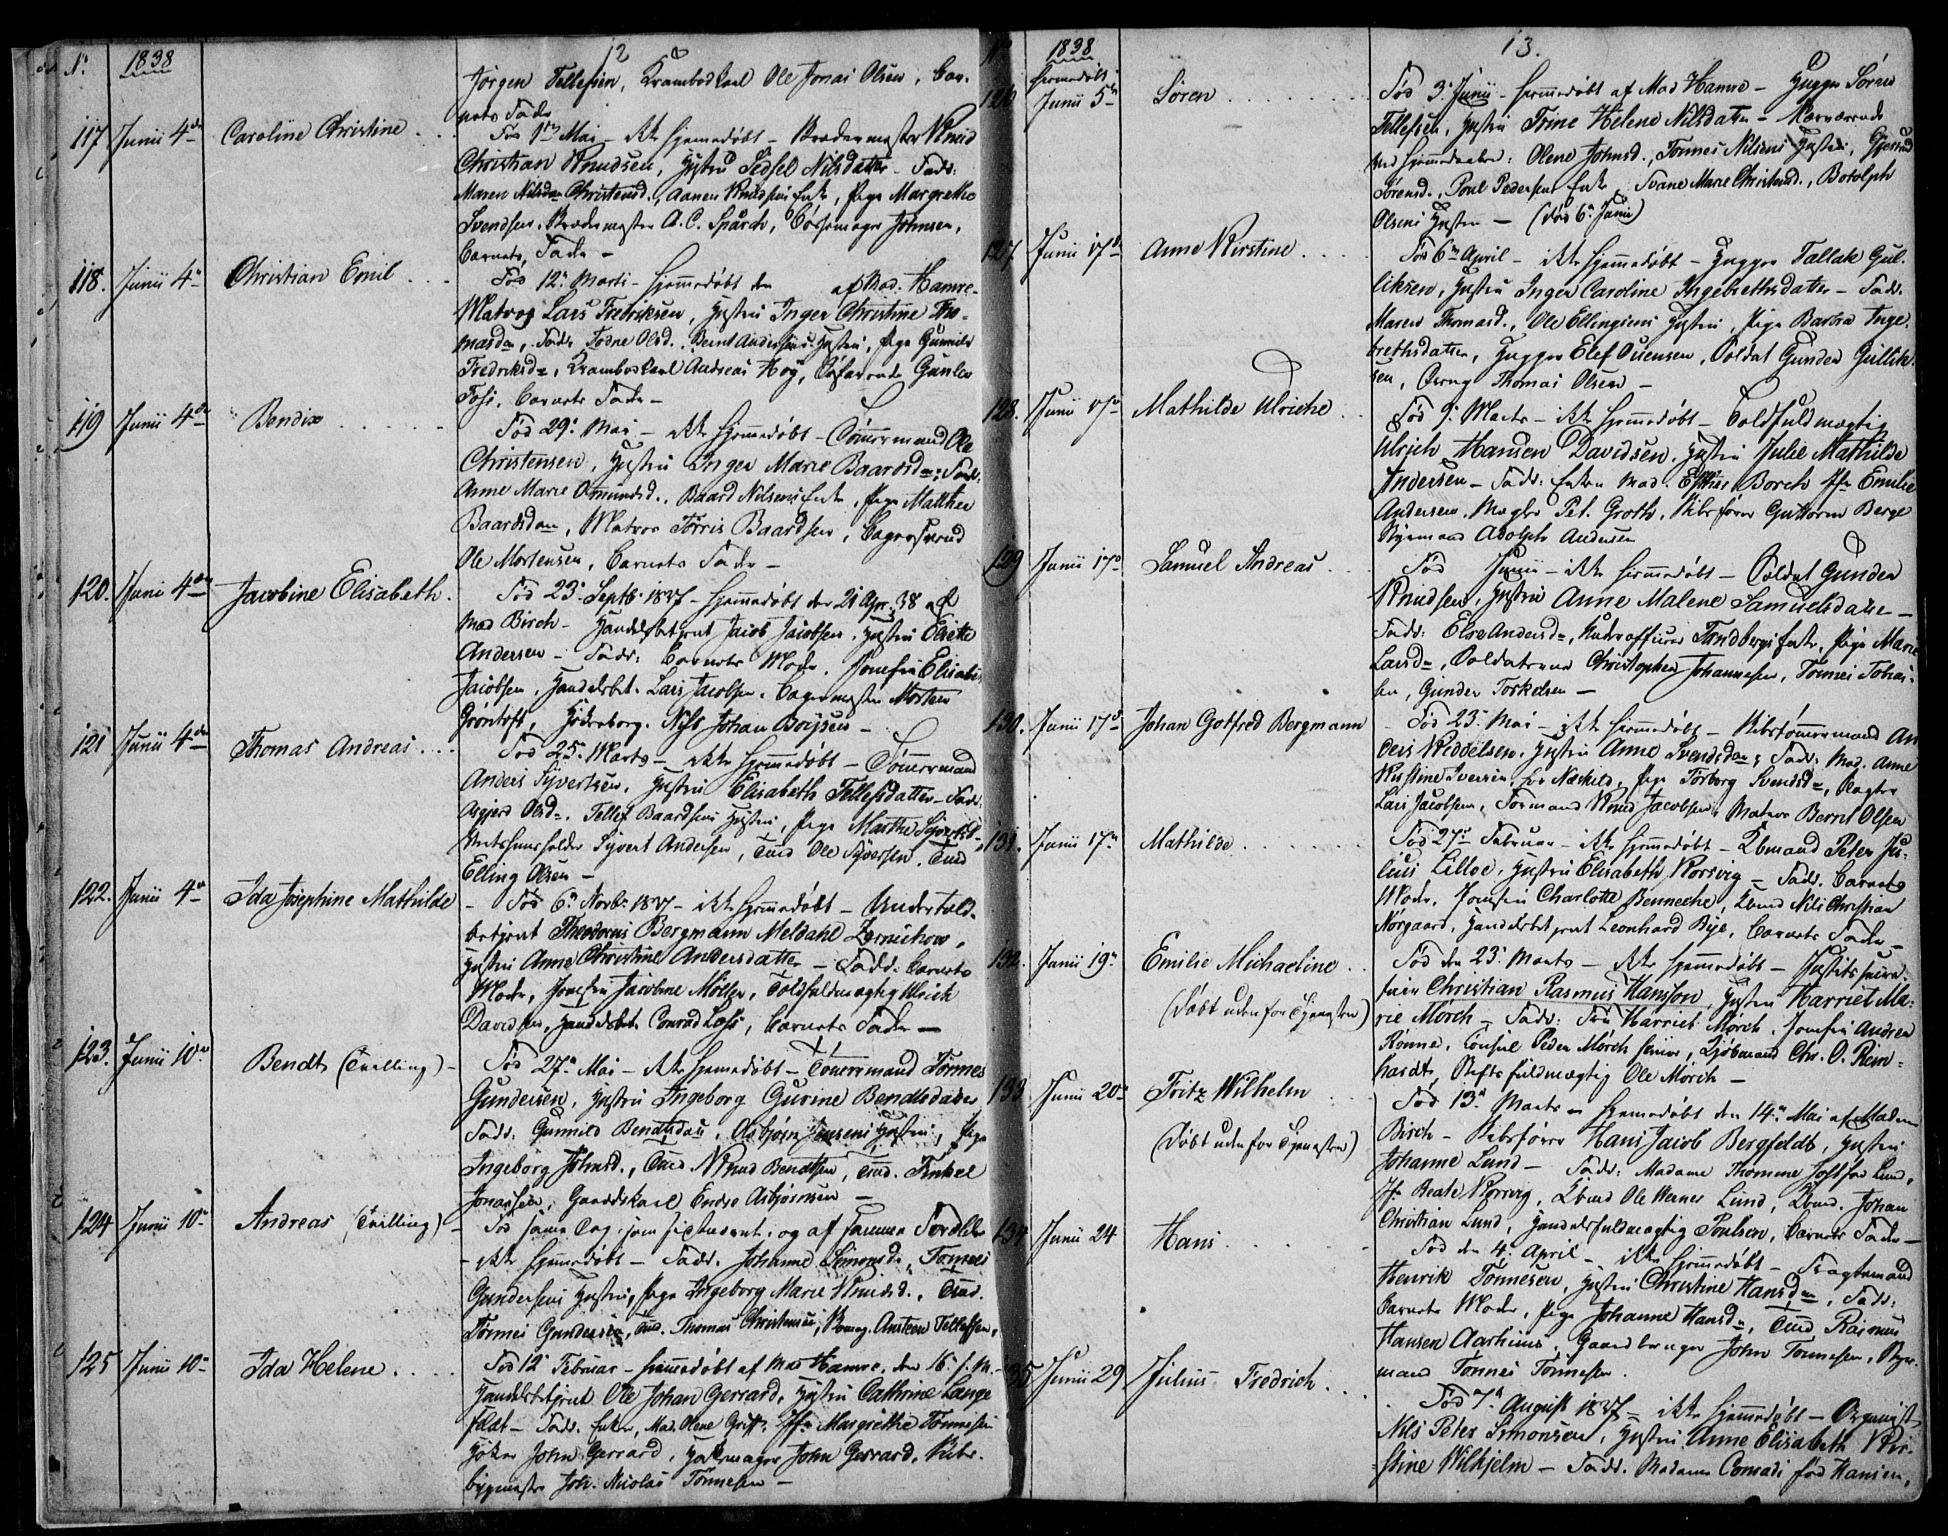 Nr. 1838 12
Jörgen Tellefsen, Krambodkarl Ole Jonas Olsen, Bar-
nets Fader
117 Junii 4de Caroline Christine . . . Fød 1ste Mai – ikke hjemmedøbt – Knud
Christian Knudsen, Hustru Sidsel Nilsdatter – Fadd:
Maren Christensd., Aanen Knudsens Enke, Pige Margrethe
Svendsen, A. C. Spärch, Johnsen,
Barnets Fader –
118. Junii 4de Christian Emil . . . Fød 12te Marti – hjemmedøbt den af Mad. Hamre –
Matros Lars Fredriksen, Hustru Inger Christine Tho-
masdr, Fadd: Todne Olsd., Bernt Andersens Hustru, Pige Gunnild
Fredriksdr, Krambodkarl Andreas Høg, Gunlev
Barnets Fader –
119 Junii 4de Bendix . . . . . . Fød 29. Mai – ikke hjemmedøbt – Tømmermand Ole
Christensen, Hustru Inger Marie Baardsdr; Fadd:
Anne Marie Omundsd., Baard Nilsens Enke, Pige Malthea
Baardsdatr, Matros Torris Baardsen,
Ole Mortensen, Barnets Fader –
120. Junii 4de Jacobine Elisabeth. Fød 23. Septb: 1837 – hjemmedøbt den 21 Apr: 38 af
Mad Birch – Handelsbetjent Jacob Jacobsen, Hustru Elisabeth
Andersen – Fadd: Barnets Moder, Jomfru Elisabet
Jacobsen, Handelsbet. Lars Jacobsen, Morten
Gröntoft, Nils Johan Boyesen –
121 Junii 4de Thomas Andreas . . . Fød 25. Marts – ikke hjemmedøbt – Tømmermand
Anders Syvertsen, Hustru Elisabeth Tellefsdatter – Fadd:
Asgjerd Olsdr, Tellef Baardsens Hustru, Pige Marthe Syvertsd.,
Syvert Andersen, Tmd Ole Syversen, Tmd
Elling Olsen –
122. Junii 4de Ida Josephine Mathilde – Fød 6te Novb: 1837 – ikke hjemmedøbt – Undertold-
betjent Theodorus Bergmann Meldahl Zernichow,
Hustru Anne Christine Andersdatter – Fadd: Barnets
Moder, Jomfru Jacobine Möller, Toldfuldmægtig Ulrich
Davidsen, Handelsbetj. Conrad Loss, Barnets Fader –
123. Junii 10de Bendt (Tvilling) – Fød 27de Mai – ikke hjemmedøbt – Tømmermand Tönnes
Gundersen, Hustru Ingeborg Gurine Bendtsdatter
Fadd: Gunnild Bendtsdatr, Asbjørn Jensens Hustru, Pige
Ingeborg Johnsd., Tmd Knud Bendtsen, Tmd. Tinkel
Jonassen, Gaardskarl Endre Asbjørnsen –
124 Junii 10de Andreas (Tvilling) – Fød samme Dag, som sidstnævnt, og af samme Forældre
– ikke hjemmedøbt – Fadd: Johanne Simonsd., Tönnes
Gundersens Hustru, Pige Ingeborg Marie Knudsd., Tmd.
Tönnes Gundersen, Tmd. Thomas Christensen, Ansteen Tellefsen.
125 Junii 10de Ida Helene . . . . Fød 12. Februar – hjemmedøbt af Mad Hamre den 16. s. M. –
Handelsbetjent Ole Johan Gerrard, Hustru Cathrine Lange
feldt – Fadd: Enken Mad. Olene Grift, Jfr Margrethe Tönnesen
Høker John Gerrard, John Gerrard,
Joh. Nicolai Tönnesen –
Nr. 1838 13.
126 hjemmedøbt Junii 5te Sören . . . . . . . Fød 3. Junii – hjemmedøbt af Mad Hamre – Hugger Sören
Tellefsen, Hustru Trine Helene Nilsdatter – Nærværende
ved Hjemmedaaben: Olene Johnsd., Tönnes Nilsens Hustru, Gjertrud
Sörensd., Poul Pedersens Enke, Svane Marie Christensd., Botolph
Olsens Hustru – (død 6te Junii)
127. Junii 17de Anne Kirstine . . . . Fød 6te April – ikke hjemmedøbt – Hugger Tallak Gul-
liksen, Hustru Inger Caroline Ingebrethsdatter – Fadd:
Maren Thomasd., Ole Ellingsens Hustru, Pige Barbra Inge-
brethsdatter, Hugger Elef Ouensen, Soldat Gunder Gullik-
sen, Thomas Olsen –
128. Junii 17de Mathilde Ulriche . . Fød 9. Marts – ikke hjemmedøbt – Toldfuldmægtig
Ulrich Hansen Davidsen, Hustru Julie Mathilde
Andersen – Fadd: Enken Mad. Esther Borch Jfr Emilie
Andersen, Mægler Pet. Groth, Skibsfører Guttorm Berge
Styrmand Adolph Andersen
129 Junii 17de Samuel Andreas . . . Fød Junii – ikke hjemmedøbt – Soldat Gunder
Knudsen, Hustru Anne Malene Samuelsdatter –
Fadd: Else Andersdr, Underofficer Enke, Pige Marie
Larsdr, Soldaterne Christopher Johannesen, Tönnes Tobias-
sen, Gunder Torkelsen –
130. Junii 17de Johan Gotfred Bergmann – Fød 23. Mai – ikke hjemmedøbt – Skibstømmermand An-
ders Kiddelsen, Hustru Anne Svendsdr; Fadd: Mad. Anne
Kirstine Iversen, Pige Torborg Svendsdr, Slagter
Lars Jacobsen, Formand Knud Jacobsen, Matros Bernt Olsen
131. Junii 17de Mathilde . . . . . . . Fød 27de Februar – ikke hjemmedøbt – Kbmand Peter Ju-
lius Lilloe, Hustru Elisabeth Korsvig – Fadd: Barnets
Moder, Jomfru Charlotte Benneche, Kbmd Nils Christian
Nörgaard, Handelsbetjent Leonhard Bye, Barnets Fader –
132. Junii 19de Emilie Michaeline . . Fød den 23. Marts – ikke hjemmedøbt – Justitssecre-
tair Christian Rasmus Hansson, Hustru Harriet Ma-
(døbt uden for Tjenesten) rie Mörch – Fadd: Fru Harriet Mörch, Jomfru Andrea
Rönne, Consul Peder Mörch senior, Kjöbmand Chr. O. Rein-
hardt, Stiftsfuldmægtig Ole Mörch –
133 Junii 20de Fritz Wilhelm . . . Fød 13de Marts – hjemmedøbt den 14de Mai af Madam
(døbt uden for Tjenesten) Birch – Skibsfører Hans Jacob Bergfeldt, Hustru
Johanne Lund – Fadd: Madame Thomine Lund,
Jfr Beate Korsvig, Kbmd Ole Werner Lund, Kbmd. Johan
Christian Lund, Handelsfuldmægtig Poulsen, Barnets Fader –
134 Junii 24 Hans . . . . . . . Fød den 4. April – ikke hjemmedøbt – Fragtemand
Henrik Tönnesen, Hustru Christine Hansdr, Fadd:
Barnets Moder, Pige Johanne Hansdr, Tmd Rasmus
Hansen Aarhuus, Gaardbruger John Tönnesen, Styr-
mand Tönnes Tönnesen.
135 Junii 29 Julius Fredrich . . . Fød 7de August 1837 – ikke hjemmedøbt – Organist
Nils Peter Simonsen, Hustru Anne Elisabeth Kir-
stine Wilhjelm – Fadd: Madame Conradi född Hansen,